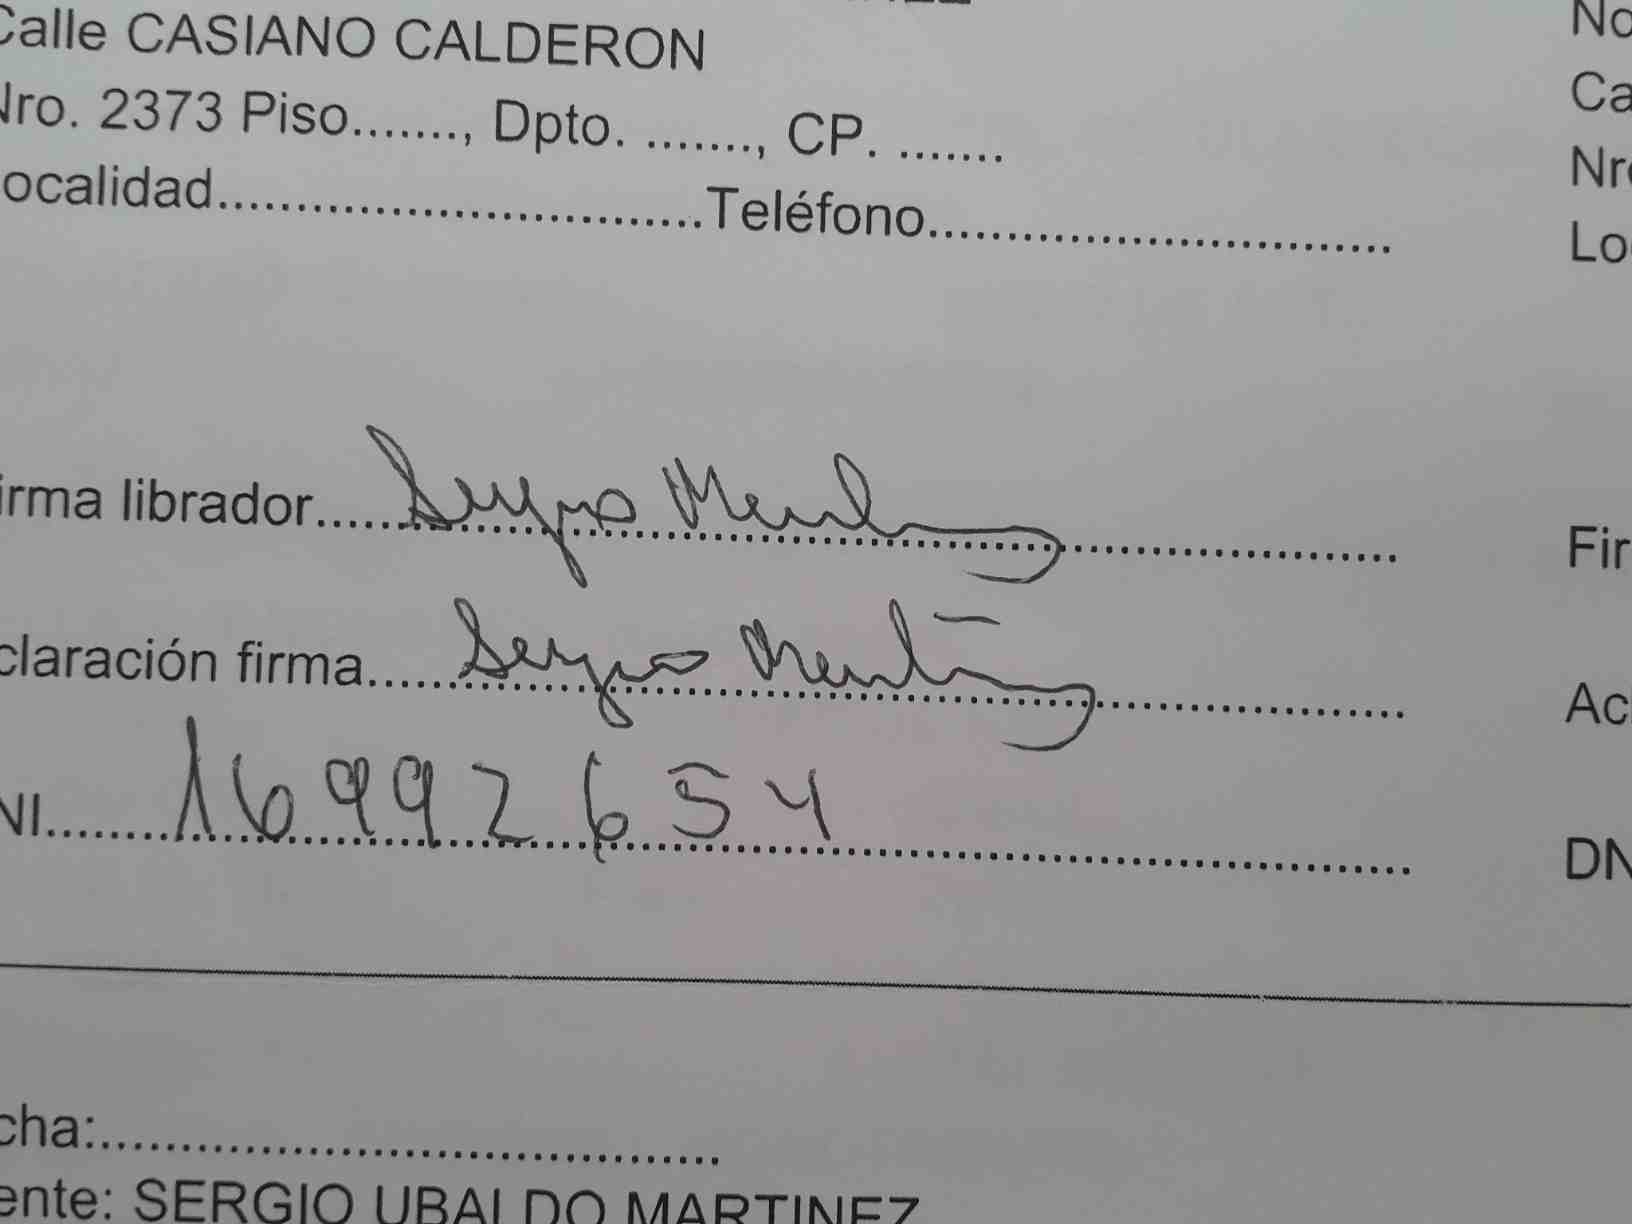 Calle CASIANO CALDERON No
Nro. 2373 Piso......., Dpto. ......., CP. ....... Ca
ocalidad...............................Teléfono.............................. Nro
Lo
irma librador...... Sergio Martinez .......................... Fir
claración firma..... Sergio Martinez .................... Acl
NI......... 16992654 ...................................... DN
cha:........................................
ente: SERGIO UBALDO MARTINEZ